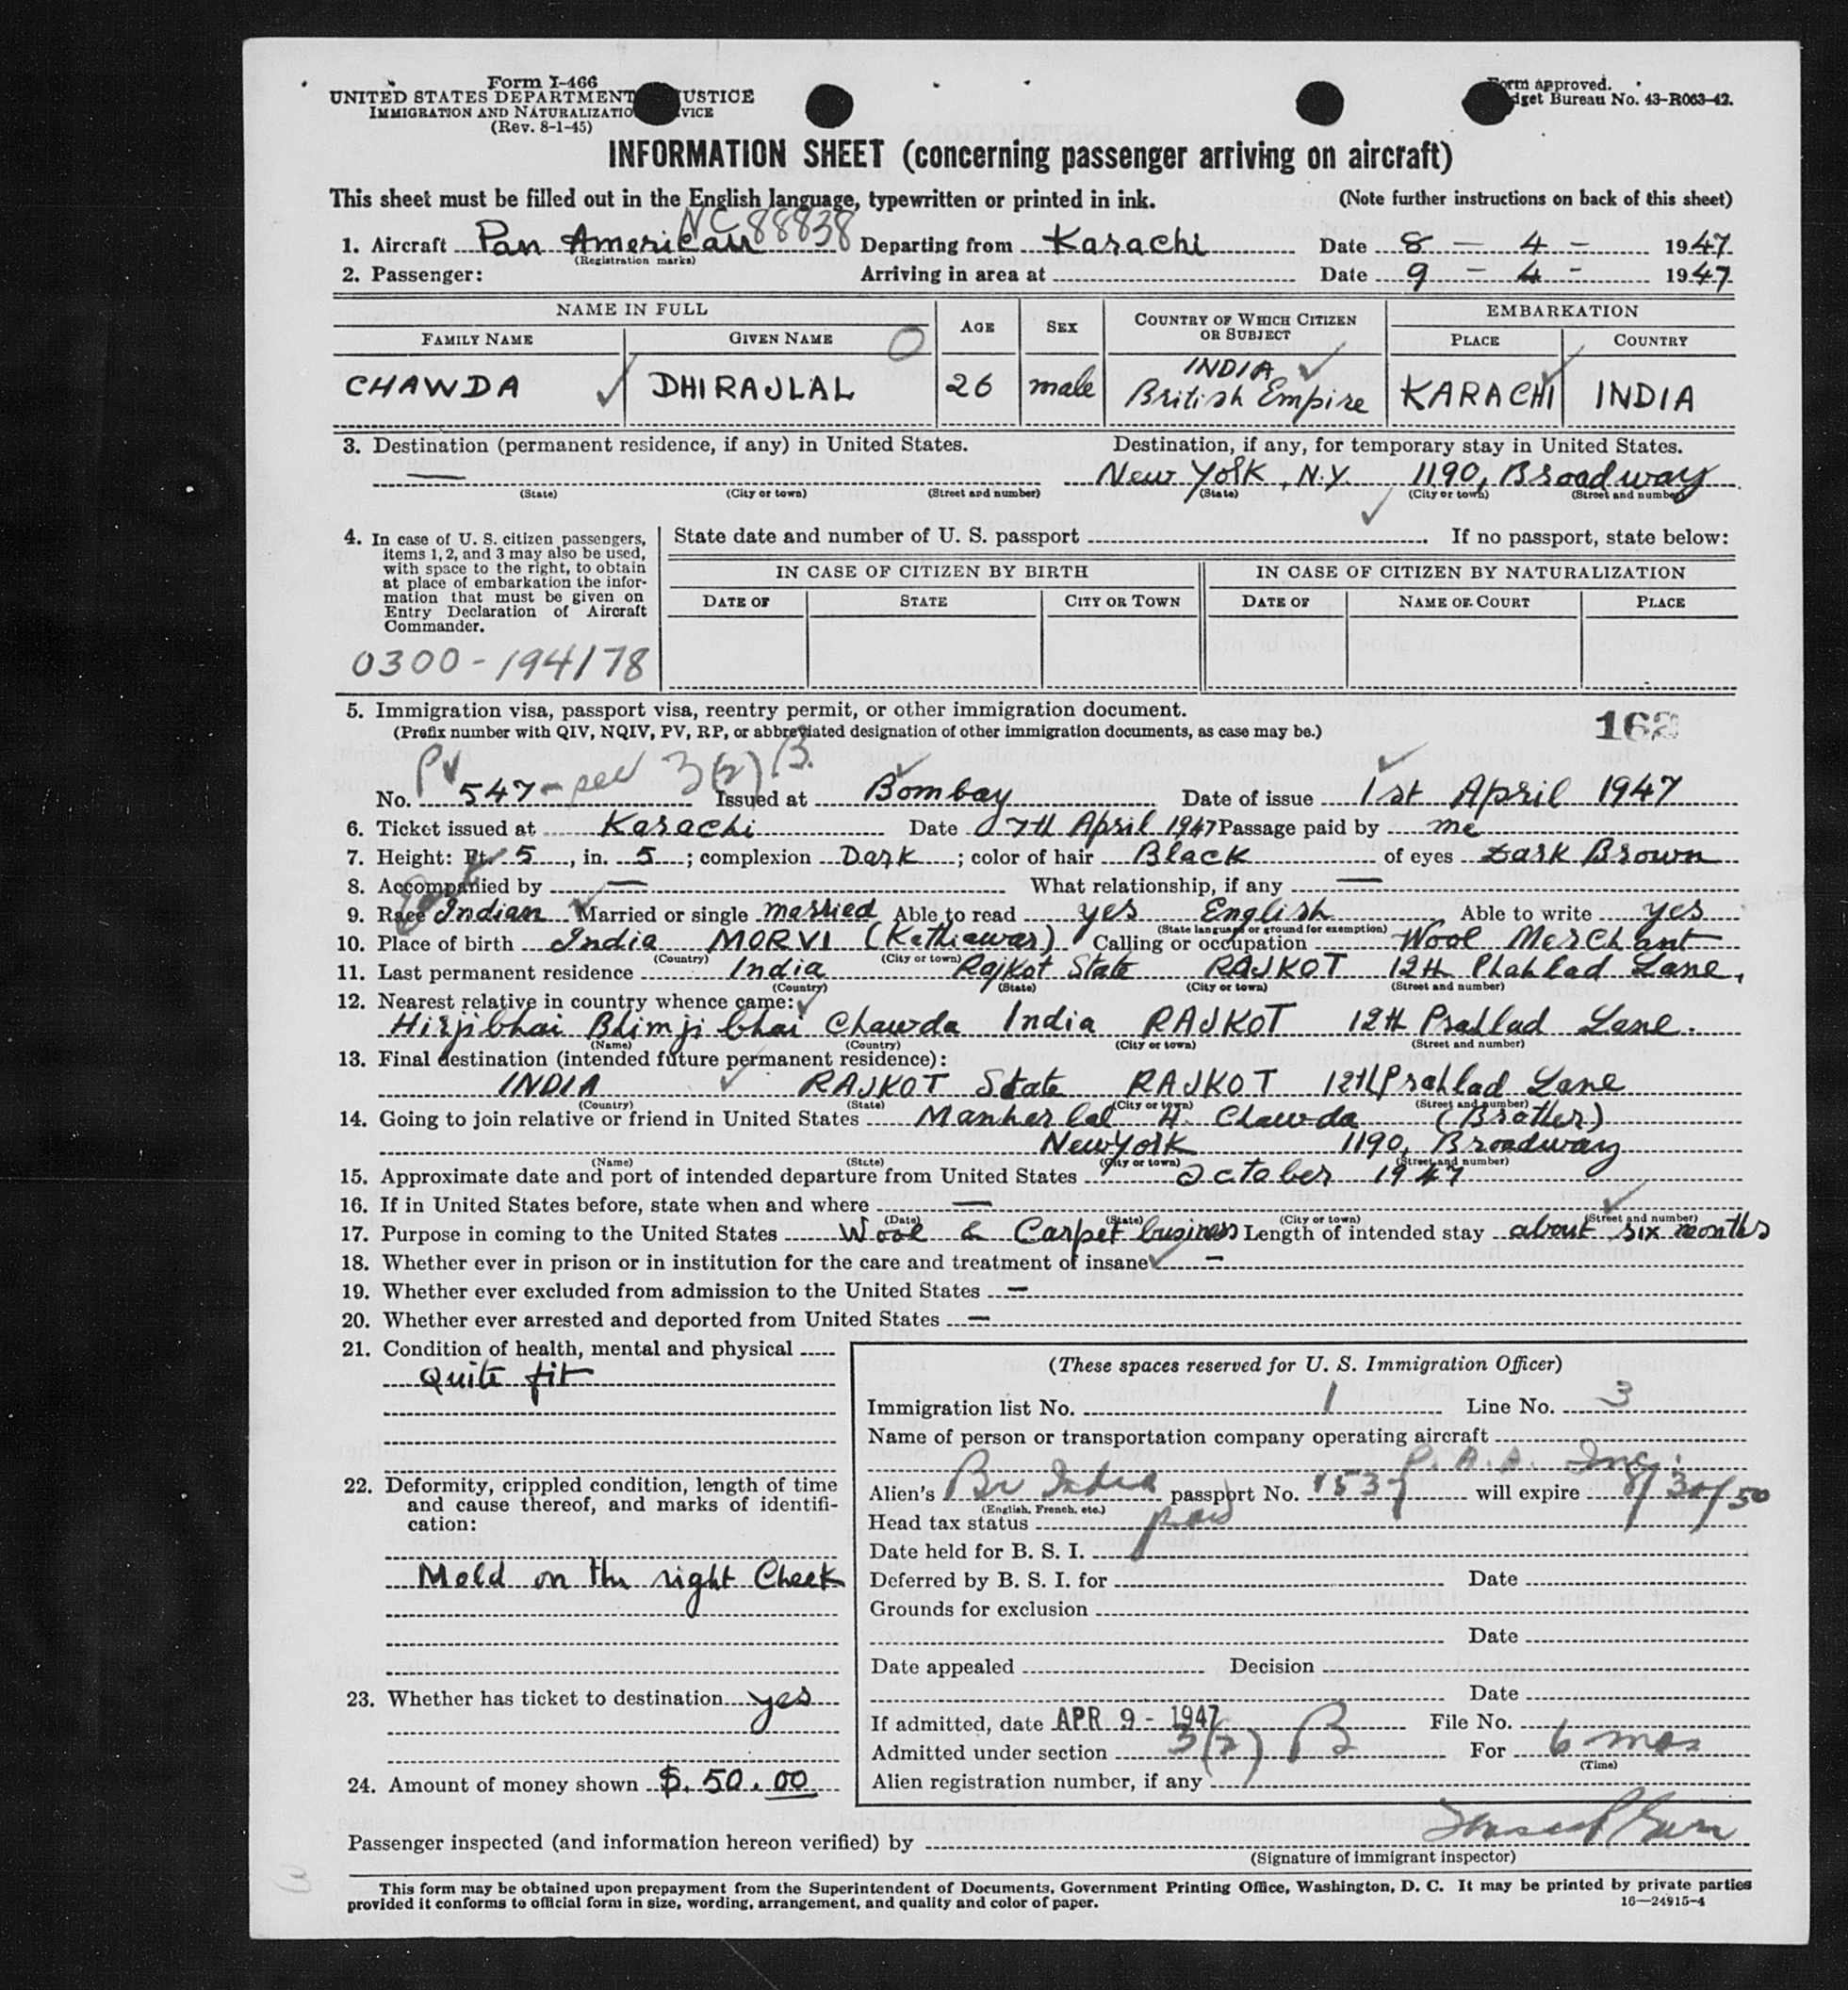 Form I-466
UNITED STATES DEPARTMENT USTICE
IMMIGRATION AND NATURALIZATIO VICE
(Rev. 8-1-45)
Form approved.
dget Bureau No. 43-R063-42.
INFORMATION SHEET (concerning passenger arriving on aircraft)
This sheet must be filled out in the English language, typewritten or printed in ink. (Note further instructions on back of this sheet)
NC 88838
1. Aircraft Pan American Departing from Karachi Date 8 - 4 - 1947
(Registration marks)
2. Passenger: Arriving in area at Date 9 - 4 - 1947
NAME IN FULL AGE SEX COUNTRY OF WHICH CITIZEN OR SUBJECT EMBARKATION
FAMILY NAME GIVEN NAME O PLACE COUNTRY
CHAWDA DHIRAJLAL 26 male INDIA British Empire KARACHI INDIA
3. Destination (permanent residence, if any) in United States. Destination, if any, for temporary stay in United States.
— New York, N.Y. 1190, Broadway
(State) (City or town) (Street and number) (State) (City or town) (Street and number)
4. In case of U. S. citizen passengers, items 1, 2, and 3 may also be used, with space to the right, to obtain at place of embarkation the information that must be given on Entry Declaration of Aircraft Commander.
State date and number of U. S. passport If no passport, state below:
IN CASE OF CITIZEN BY BIRTH IN CASE OF CITIZEN BY NATURALIZATION
DATE OF STATE CITY OR TOWN DATE OF NAME OF COURT PLACE
0300-194178
5. Immigration visa, passport visa, reentry permit, or other immigration document. 162
(Prefix number with QIV, NQIV, PV, RP, or abbreviated designation of other immigration documents, as case may be.)
PV 3(2) B.
No. 547 - Issued at Bombay Date of issue 1st April 1947
6. Ticket issued at Karachi Date 7th April 1947 Passage paid by me
7. Height: Ft. 5, in. 5; complexion Dark; color of hair Black of eyes Dark Brown
8. Accompanied by — What relationship, if any —
9. Race Indian Married or single married Able to read yes English Able to write yes
(State language or ground for exemption)
10. Place of birth India MORVI (Kathiawar) Calling or occupation Wool Merchant
(Country) (City or town)
11. Last permanent residence India Rajkot State RAJKOT 12th Phahlad Lane,
(Country) (State) (City or town) (Street and number)
12. Nearest relative in country whence came:
Hirjibhai Bhimjibhai Chawda India RAJKOT 12th Prahlad Lane.
(Name) (Country) (City or town) (Street and number)
13. Final destination (intended future permanent residence):
INDIA RAJKOT State RAJKOT 12th Prahlad Lane
(Country) (State) (City or town) (Street and number)
14. Going to join relative or friend in United States Manherlal H. Chawda (Brother)
New York 1190, Broadway
(Name) (State) (City or town) (Street and number)
15. Approximate date and port of intended departure from United States October 1947
16. If in United States before, state when and where —
(Date) (State) (City or town) (Street and number)
17. Purpose in coming to the United States Wool & Carpet business Length of intended stay about six months
18. Whether ever in prison or in institution for the care and treatment of insane —
19. Whether ever excluded from admission to the United States —
20. Whether ever arrested and deported from United States —
21. Condition of health, mental and physical
Quite fit
22. Deformity, crippled condition, length of time and cause thereof, and marks of identification:
Mold on the right Cheek
23. Whether has ticket to destination yes
24. Amount of money shown $. 50.00
(These spaces reserved for U. S. Immigration Officer)
Immigration list No. 1 Line No. 3
Name of person or transportation company operating aircraft
P. A. A. Inc.
Alien's Br India passport No. 1537 will expire 8/30/50
(English, French, etc.)
Head tax status paid
Date held for B. S. I.
Deferred by B. S. I. for Date
Grounds for exclusion
Date
Date appealed Decision
Date
If admitted, date APR 9 - 1947 File No.
Admitted under section 3(2) B For 6 mos
(Time)
Alien registration number, if any
Passenger inspected (and information hereon verified) by
(Signature of immigrant inspector)
3
This form may be obtained upon prepayment from the Superintendent of Documents, Government Printing Office, Washington, D. C. It may be printed by private parties
provided it conforms to official form in size, wording, arrangement, and quality and color of paper. 16—24915-4